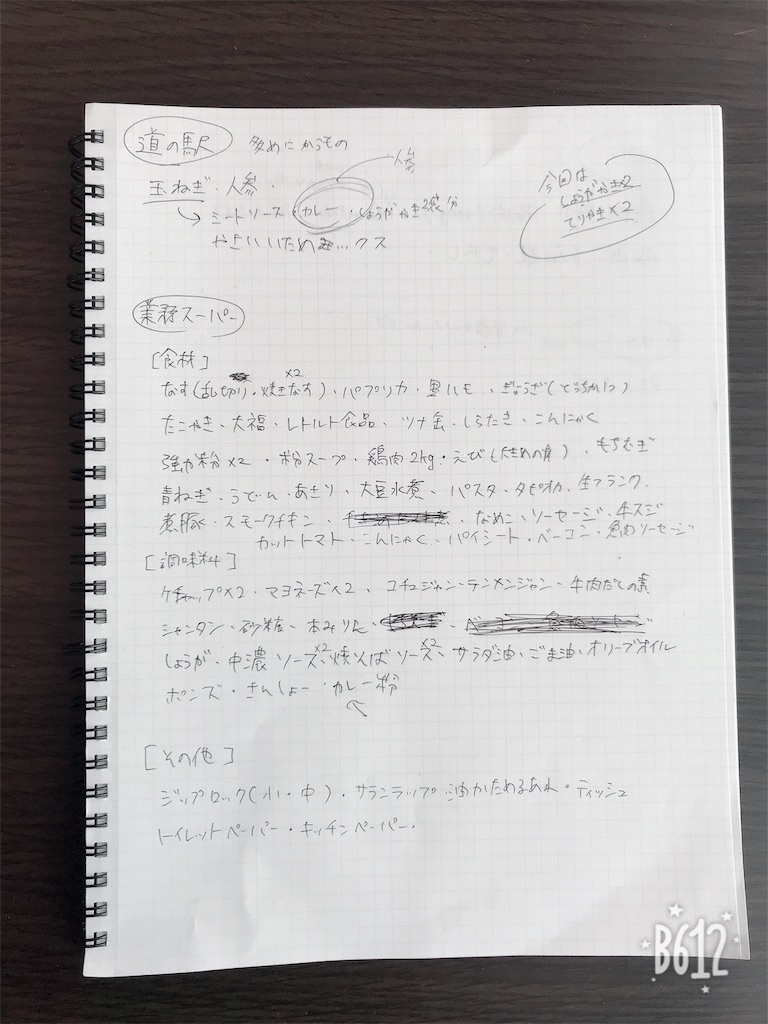 道の駅 多めにかうもの
人参
玉ねぎ・人参・
→ ミートソース・カレー・しょうがやき2袋分
やさいいためミックス
今回は
しょうがやき×2
てりやき×2
業務スーパー
[食材]
なす(乱切り・焼きなす)×2、パプリカ・黒ハモ、ぎょうざ(どっちか1つ)
たこやき・大福・レトルト食品・ツナ缶・しらたき・こんにゃく
強力粉×2・粉スープ・鶏肉2kg・えび(大きめの身)、もちむぎ
青ねぎ・うどん・あさり・大豆水煮、パスタ・タピオカ・生フランク
煮豚・スモークチキン・なめこ・ソーセージ・牛スジ
カットトマト・こんにゃく・パイシート・ベーコン・魚肉ソーセージ
[調味料]
ケチャップ×2・マヨネーズ×2、コチュジャン・テンメンジャン・牛肉だしの素
シャンタン・砂糖・本みりん・
しょうが・中濃ソース×2・焼そばソース×2・サラダ油・ごま油・オリーブオイル
ポンズ・さんしょー・カレー粉
[その他]
ジップロック(小・中)・サランラップ・油かためるあれ・ティッシュ
トイレットペーパー・キッチンペーパー・
B612